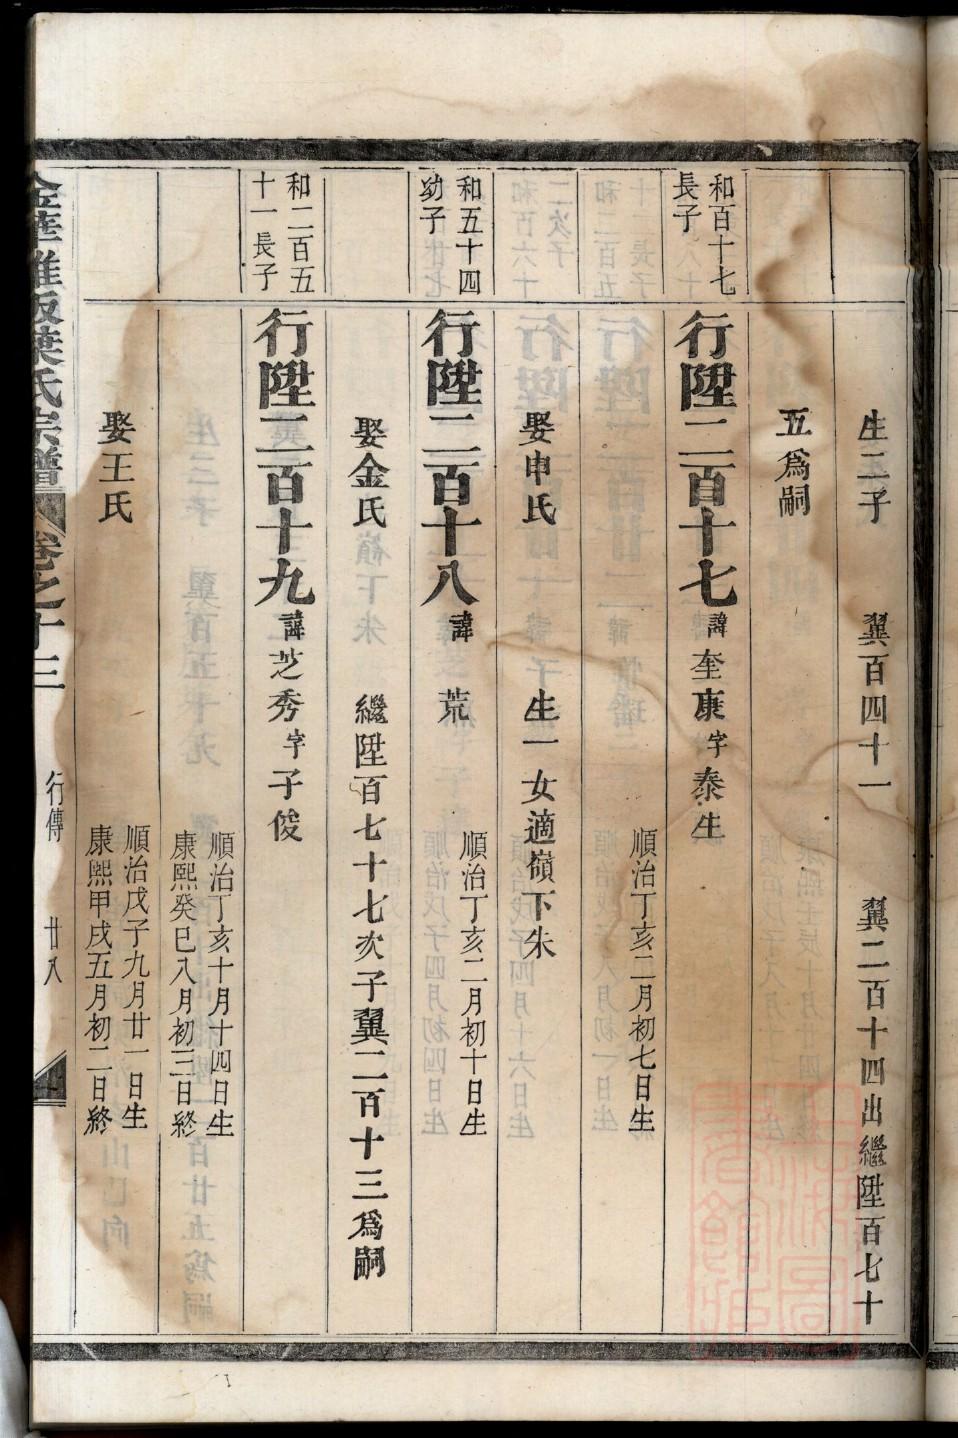 生二子 翼百四十一 翼二百十四出繼陞百七十
五為嗣
和百十七
長子
行陞二百十七 諱奎康字泰生
順治丁亥二月初七日生
娶申氏 生一女適嶺下朱
和五十四
幼子
行陞二百十八 諱 荒
順治丁亥二月初十日生
娶金氏 繼陞百七十七次子翼二百十三為嗣
和二百五
十一長子
行陞二百十九 諱芝秀字子俊
順治丁亥十月十四日生
康熙癸巳八月初三日終
娶王氏
順治戊子九月廿一日生
康熙甲戌五月初二日終
葉氏宗譜 卷之十三 行傳 廿八